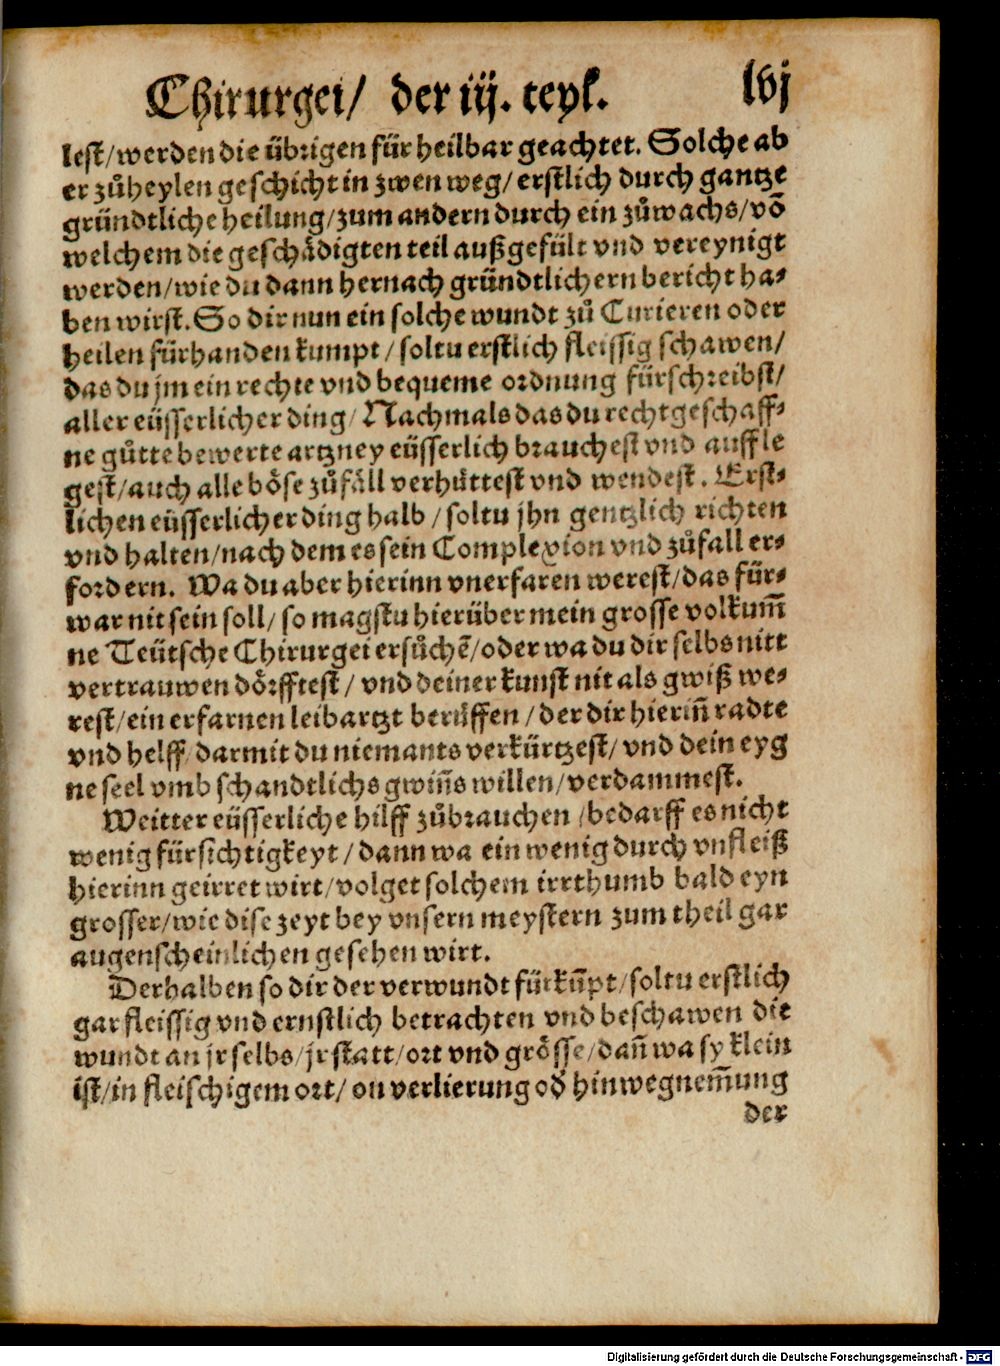 Chirurgei/ der iij. teyl.
lvj
lest/werden die übrigen für heilbar geachtet. Solche ab
er zůheylen geschicht in zwen weg/ erstlich durch gantze
gründtliche heilung/zum andern durch ein zůwachs/vō
welchem die geschådigten teil außgefült vnd vereynigt
werden/wie du dann hernach gründtlichern bericht ha-
ben wirst. So dir nun ein solche wundt zů Curieren oder
heilen fürhanden kumpt/ soltu erstlich fleissig schawen/
das du jm ein rechte vnd bequeme ordnung fürschreibst/
aller eüsserlicher ding/ Nachmals das du rechtgeschaff-
ne gůtte bewerte artzney eüsserlich brauchest vnd auffle
gest/auch alle böse zůfåll verhüttest vnd wendest. Erst-
lichen eüsserlicher ding halb/soltu jhn gentzlich richten
vnd halten/nach dem es sein Complexion vnd zůfall er-
fordern. Wa du aber hierinn vnerfaren werest/das für-
war nit sein soll/ so magstu hierüber mein grosse volkum̄
ne Teütsche Chirurgei ersůchē/oder wa du dir selbs nitt
vertrauwen dörfftest/ vnd deiner kunst nit als gwiß we-
rest/ein erfarnen leibartzt berüffen/der dir hierin̄ radte
vnd helff/darmit du niemants verkürtzest/ vnd dein eyg
ne seel vmb schandtlichs gwin̄s willen/verdammest.
Weitter eüsserliche hilff zůbrauchen/bedarff es nicht
wenig fürsichtigkeyt/dann wa ein wenig durch vnfleiß
hierinn geirret wirt/volget solchem irrthumb bald eyn
grosser/wie dise zeyt bey vnsern meystern zum theil gar
augenscheinlichen gesehen wirt.
Derhalben so dir der verwundt fürkūpt/soltu erstlich
gar fleissig vnd ernstlich betrachten vnd beschawen die
wundt an jr selbs/jr statt/ort vnd grösse/dan̄ wa sy klein
ist/in fleischigem ort/ on verlierung od̓ hinwegnem̄ung
der
Digitalisierung gefördert durch die Deutsche Forschungsgemeinschaft - DFG